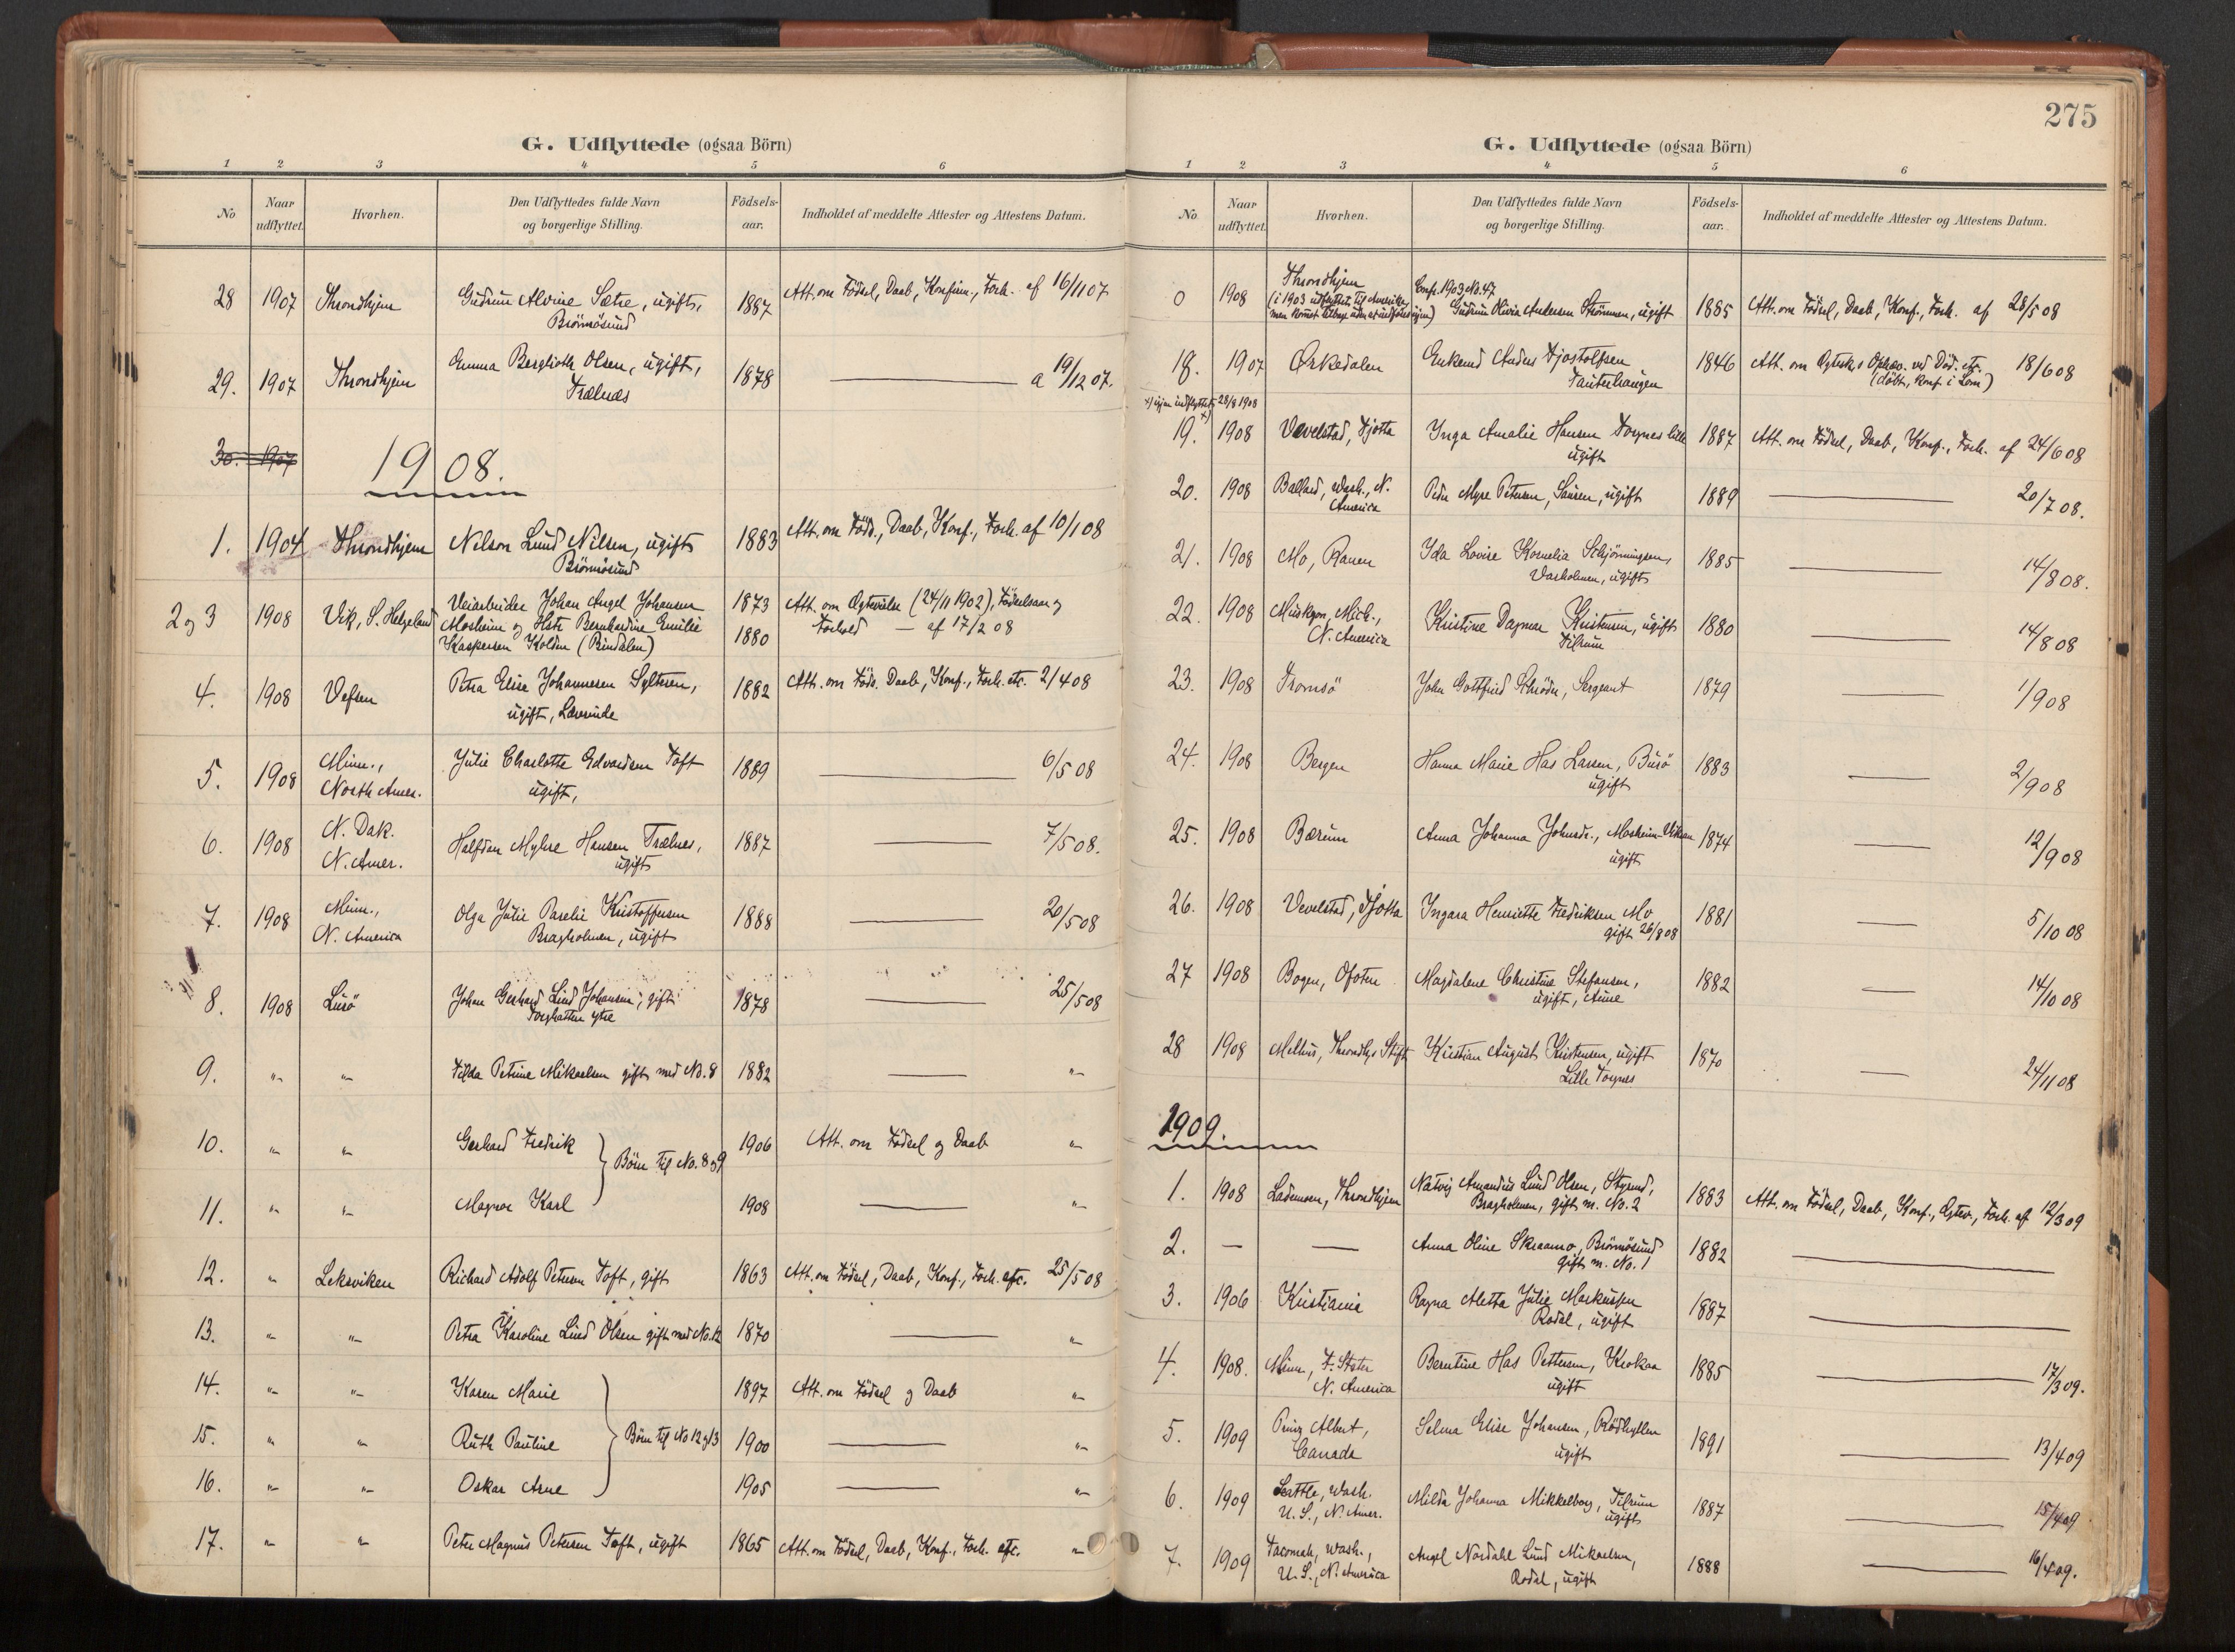 G. Udflyttede (ogsaa Börn)
1 2 3 4 5 6
No
Naar udflyttet.
Hvorhen.
Den Udflyttedes fulde Navn og borgerlige Stilling.
Födsels-aar.
Indholdet af meddelte Attester og Attestens Datum.
28 1907 Throndhjem Gudrun Alvine Sætre, ugift, 1887 Att. om Födsel, Daab, Konfirm., Forh. af 16/11 07
Brönnösund
29. 1907 Throndhjem Emma Berglioth Olsen, ugift, 1878 — a 19/12 07.
Trælnes
30. 1907
1908.
1. 1904 Throndhjem Nilson Lund Nilsen, ugift 1883 Att. om Föds., Daab, Konf., Forh. af 10/1 08
Brönnösund
2 og 3 1908 Vik, S. Helgeland Veiarbeider Johan Angel Johansen 1873 Att. om Ægtevielse (24/11 1902), Födselsaar og
Mosheim og Hstr Bernhardine Emilie 1880 Forhold — af 17/2 08
Kaspersen Kolden (Bindalen)
4. 1908 Vefsen Petra Elise Johannesen Sylteren, 1882 Att. om Föds. Daab, Konf., Forh. etc. 2/4 08
ugift, Lærerinde
5. 1908 Minn., Julie Charlotte Edvardsen Toft 1889 — 6/5 08
North Amer. ugift,
6. 1908 N. Dak. Halfdan Myhre Hansen Trælnes, 1887 — 7/5 08.
N. Amer. ugift
7. 1908 Minn., Olga Julie Paselie Kristoffersen 1888 — 20/5 08
N. America Bragholmen, ugift
8. 1908 Lurö Johan Gerhard Lind Johansen, gift 1878 — 25/5 08
Torghatten ytre
9. " " Tilda Petrine Mikaelsen gift med No. 8 1882 — "
10. " " Gerhard Fredrik 1906 Att. om Födsel og Daab "
Börn til No. 8 og 9
11. " " Magnor Karl 1908 — "
12. " Leksviken Richard Adolf Petersen Toft, gift 1863 Att. om Födsel, Daab, Konf., Forh. etc. 25/5 08
13. " " Petra Karoline Lind Olsen gift med No. 12 1870 — "
14. " " Karen Marie 1897 Att. om Födsel og Daab "
15. " " Ruth Pauline Börn til No 12 og 13 1900 — "
16. " " Oskar Arne 1905 — "
17. " " Peter Magnus Petersen Toft, ugift 1865 Att. om Födsel, Daab, Konf., Forh. etc. "
275
G. Udflyttede (ogsaa Börn)
1 2 3 4 5 6
No.
Naar udflyttet.
Hvorhen.
Den Udflyttedes fulde Navn og borgerlige Stilling.
Födsels-aar.
Indholdet af meddelte Attester og Attestens Datum.
0 1908 Throndhjem Conf. 1903 No. 47
(i 1903 udflyttet til Amerika, Gudrun Olivia Andersen Strömmen, ugift 1885 Att. om Födsel, Daab, Konf., Forh. af 28/5 08
men kommet tilbage igjen)
18. 1907 Ørkedalen Enkemd Anders Tjostolfsen 1846 Att. om Ægtesk.s Ophæv. ved Död. etc. 18/6 08
Tauterhaugen (döbt, konf. i Lom)
x) igjen indflyttet 28/8 1908
19. x) 1908 Vevelstad, Tjötta Inga Amalie Hansen Torgnes lille 1887 Att. om Födsel, Daab, Konf., Forh. af 24/6 08
ugift
20. 1908 Ballard, Wash., N. Peder Myre Petersen, Sauren, ugift 1889 — 20/7 08.
America
21. 1908 Mo, Ranen Ida Lovise Kornelia Schjönningsen, 1885 — 14/8 08.
Vasholmen, ugift
22. 1908 Muskgon, Mich., Kristine Dagmar Kristensen, ugift 1880 — 14/8 08
N. America Tilrum
23. 1908 Tromsö John Gottfried Schröder, Sergeant 1879 — 1/9 08
24. 1908 Bergen Hanna Marie Has Larsen, Burö 1883 — 2/9 08
ugift
25. 1908 Bærum Anna Johanna Johnsdr., Mosheim-Viksen 1874 — 12/9 08
ugift
26. 1908 Vevelstad, Tjötta Ingara Henriette Fredriksen Mo 1881 — 5/10 08
gift 26/8 08
27 1908 Bogen, Ofoten Magdalene Christine Stefansen, 1882 — 14/10 08
ugift, Aune
28 1908 Melhus, Throndhjs Stift Kristian August Kristensen, ugift 1870 — 24/11 08
Lille Torgnes
1909.
1. 1908 Lademoen, Throndhjem Natvig Amandus Lund Olsen, Styrmd, 1883 Att. om Födsel, Daab, Konf., Ægtev., Forh. af 12/3 09
Bragholmen, gift m. No. 2
2. — — Anna Oline Skraamo, Brönnösund 1882 —
gift m. No. 1
3. 1906 Kristiania Ragna Aletta Julie Markussen 1887 —
Rodal, ugift
4. 1908. Minn, F. Stater Berntine Has Pettersen, Krokaa 1885 — 17/3 09.
N. America ugift
5. 1909 Prins Albert, Selma Elise Johansen, Rödhyllen 1891 — 13/4 09
Canada ugift
6. 1909 Serttle, Wash. Milda Johanna Mikkelborg, Tilrum 1887 — 15/4 09
U. S., N. Amer. ugift
7. 1909 Tacomah, Wash., Angel Nordahl Lund Mikaelsen, 1888 — 16/4 09.
U. S., N. America Rodal, ugift